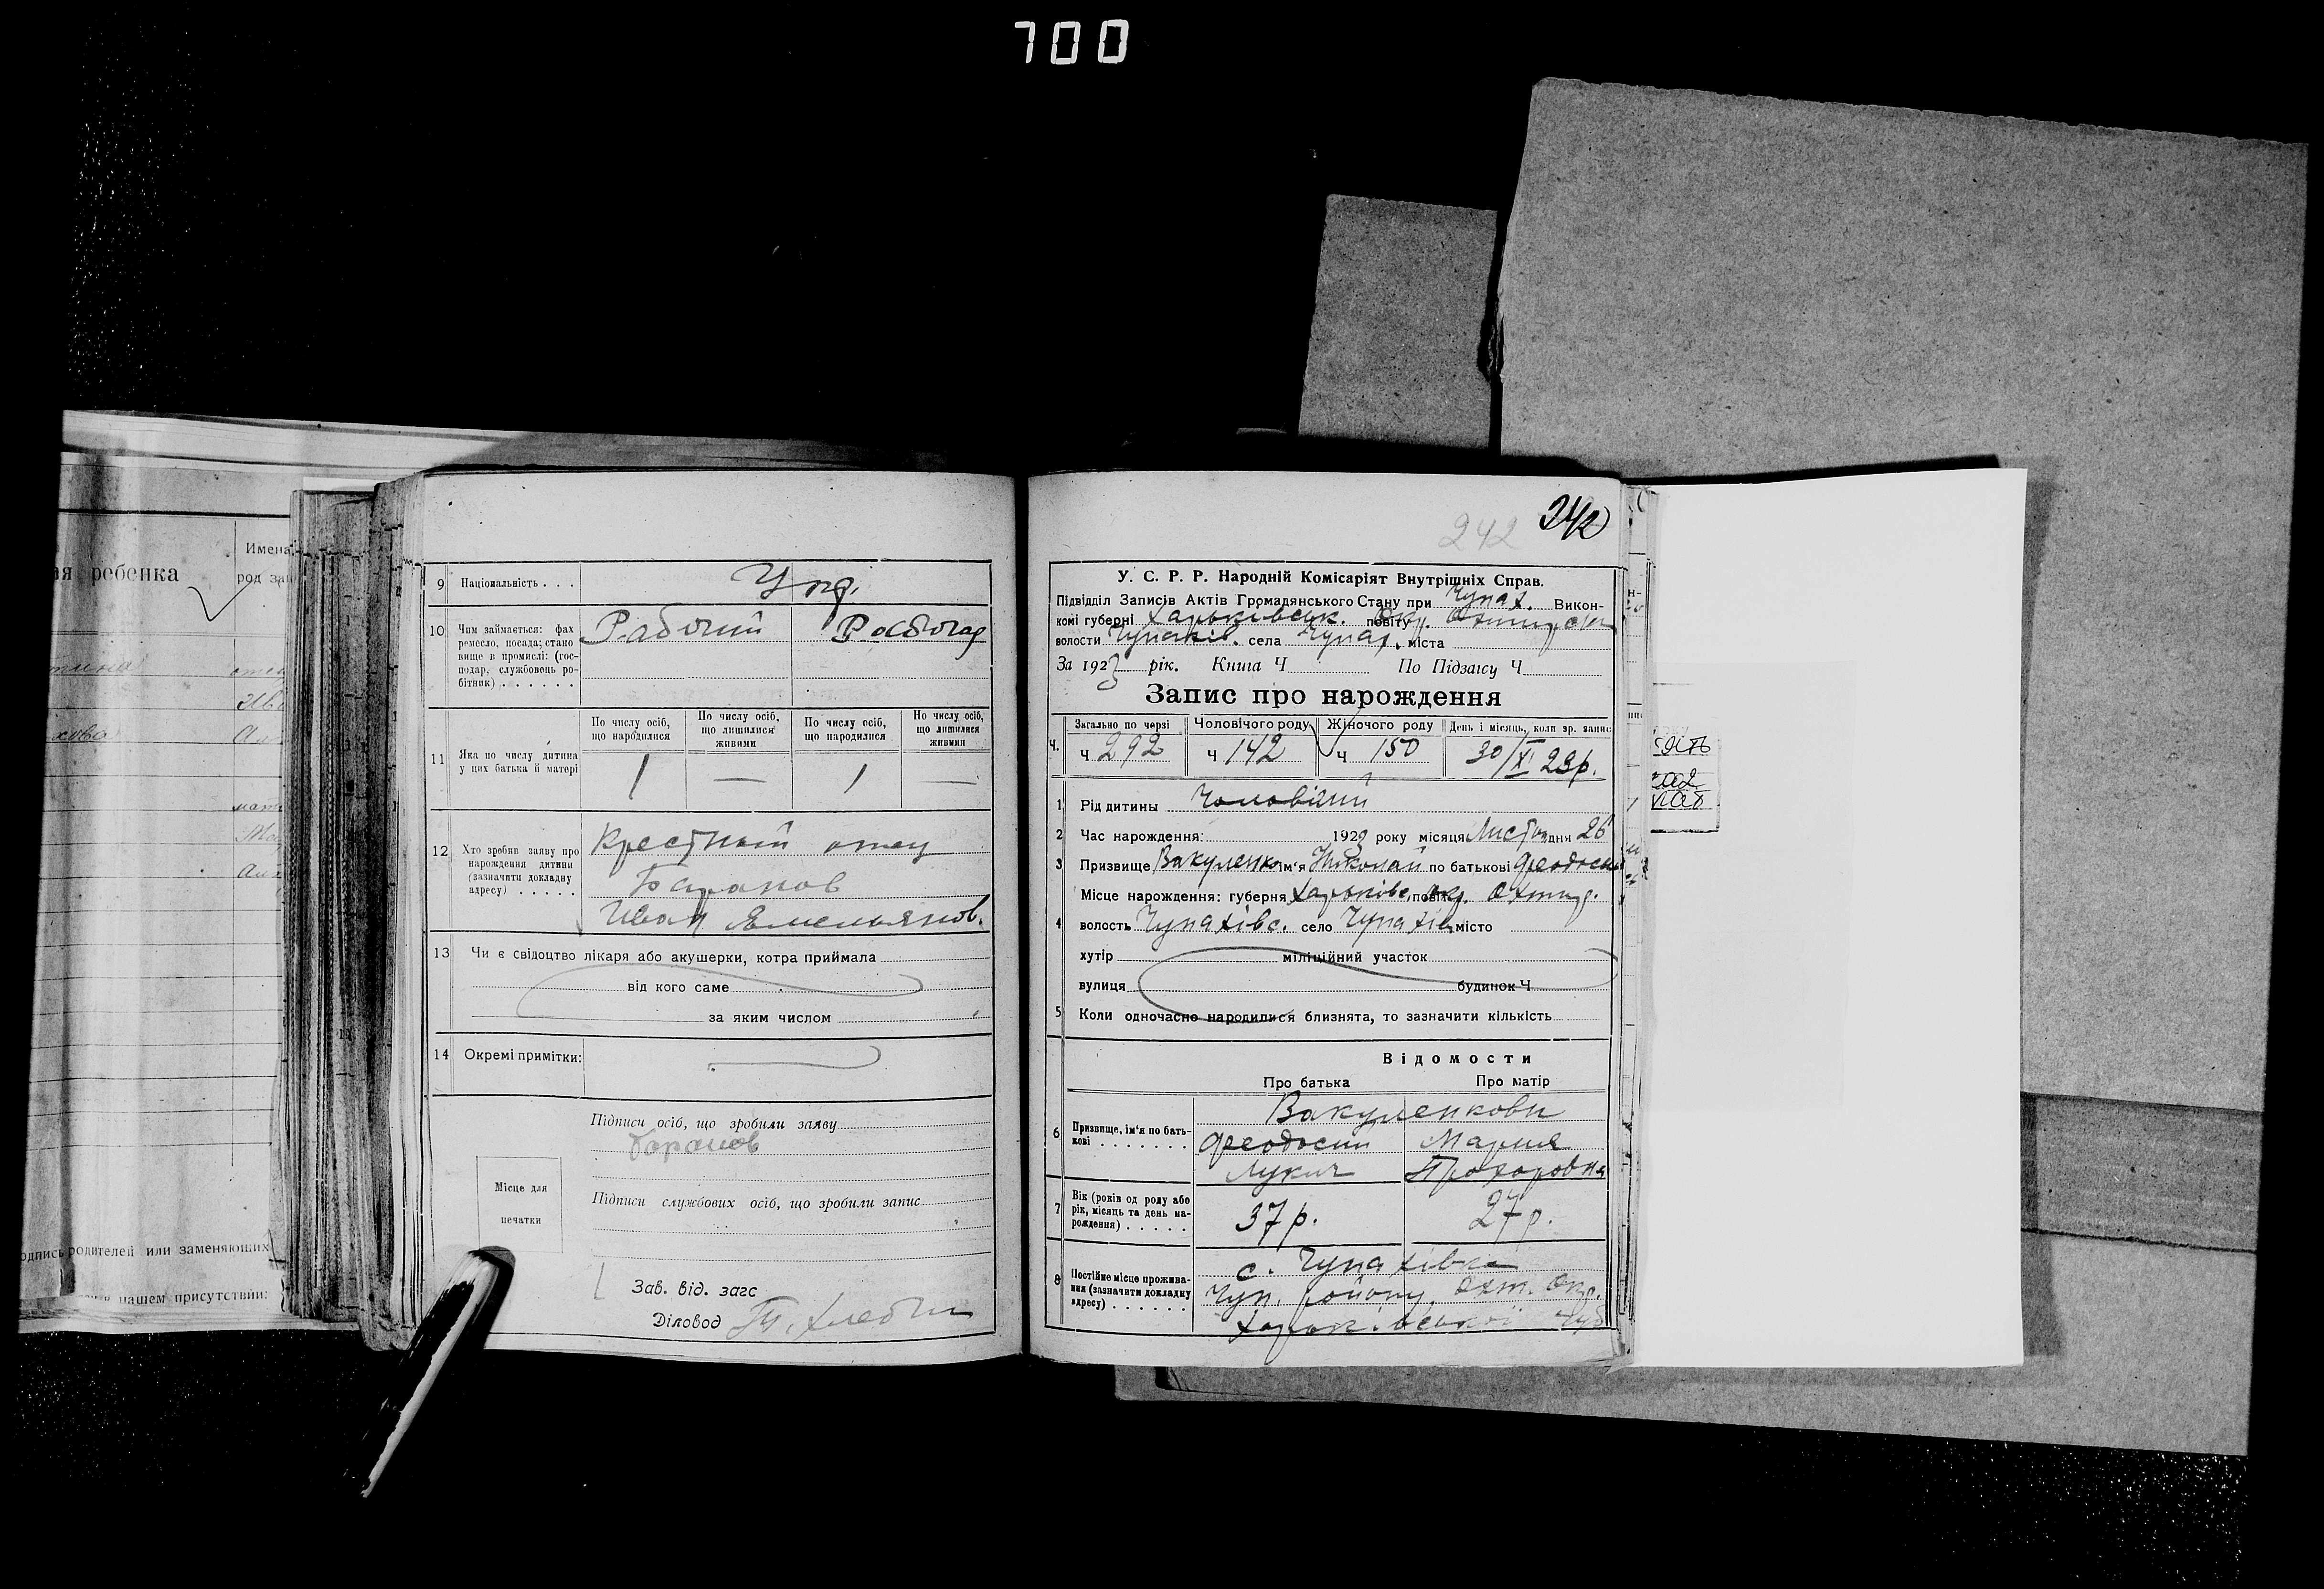 700
ая ребенка
Имена
род
9 Національність . . . Укр.
10 Чим займається: фах ремесло, посада; становище в промислі: (господар, службовець робітник) . . . . . . Рабочий
11 Яка по числу дитина у цих батька й матері
По числу осіб, що народилися
По числу осіб, що лишилися живими
По числу осіб, що народилися
По числу осіб, що лишилися живими
1 — 1 —
12 Хто зробив заяву про нарождення дитини (зазначити докладну адресу) . . . . .
Крестный отец
Баранов
Иван Емельянов.
13 Чи є свідоцтво лікаря або акушерки, котра приймала
від кого саме
за яким числом
14 Окремі примітки:
Підписи осіб, що зробили заяву
Баранов
Місце для печатки
Підписи службових осіб, що зробили запис
Зав. від. загс
Діловод
родителей или заменяющих
нашем присутствии:
242 242
У. С. Р. Р. Народній Комісаріят Внутрішніх Справ.
Підвідділ Записів Актів Громадянського Стану при Чупах. Викон-
комі губерні Харьківськ. повіту Окр. Охтирськ
волости Чупахів. села Чупах. міста
За 1923 рік. Книга Ч По Підзагсу Ч
Запис про нарождення
Загально по черзі Чоловічого роду Жіночого роду День і місяць, коли зр. запис
Ч. ч 292 ч 142 ч 150 30/XI 23р.
1 Рід дитини Чоловічий
2 Час нарождення: 1923 року місяця Листоп. дня 26
3 Призвище Вакуленко ім'я Николай по батькові Феодосие
Місце нарождення: губерня Харьківс. повіт Окр. Охтир.
4 волость Чупахівс. село Чупахів місто
хутір міліційний участок
вулиця будинок Ч
5 Коли одночасно народилися близнята, то зазначити кількість
Відомости
Про батька Про матір
Вакуленкови
6 Призвище, ім'я по батькові . . . . . . . Феодосий Мария
Лукич Прохоровна
7 Вік (років од роду або рік, місяць та день нарождення) . . . . . 37 р. 27 р.
8 Постійне місце проживання (зазначити докладну адресу) . . . . . .
с. Чупахівка
Чуп. району, Охт. Окр.
Харьківської Губ